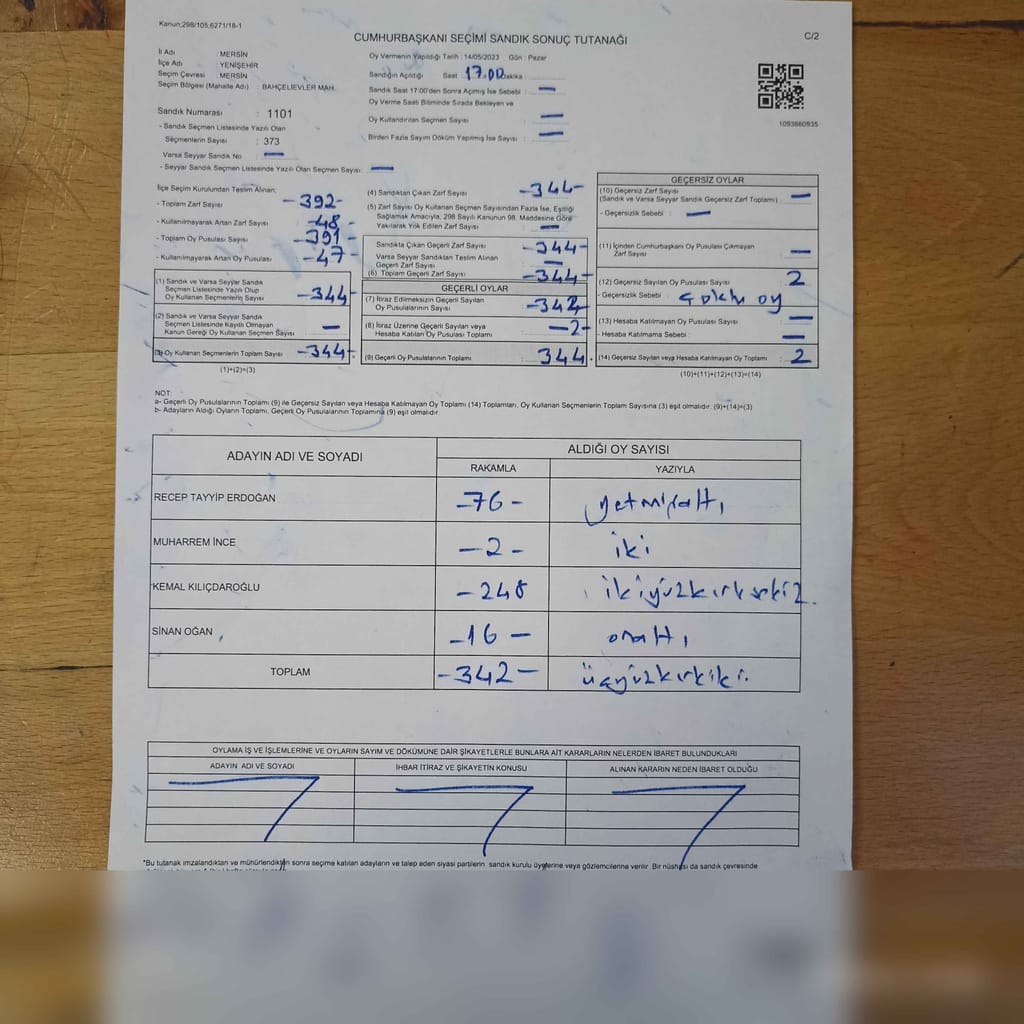 Kanun:298/105;6271/18-1
CUMHURBAŞKANI SEÇİMİ SANDIK SONUÇ TUTANAĞI
C/2
İl Adı : MERSİN
İlçe Adı : YENİŞEHİR
Seçim Çevresi : MERSİN
Seçim Bölgesi (Mahalle Adı) : BAHÇELİEVLER MAH.
Sandık Numarası : 1101
- Sandık Seçmen Listesinde Yazılı Olan
Seçmenlerin Sayısı : 373
Varsa Seyyar Sandık No : —
- Seyyar Sandık Seçmen Listesinde Yazılı Olan Seçmen Sayısı: —
Oy Vermenin Yapıldığı Tarih : 14/05/2023 Gün : Pazar
Sandığın Açıldığı Saat : 17.00 Dakika :
Sandık Saat 17:00'den Sonra Açılmış İse Sebebi : —
Oy Verme Saati Bitiminde Sırada Bekleyen ve
Oy Kullandırılan Seçmen Sayısı : —
Birden Fazla Sayım Döküm Yapılmış İse Sayısı : —
1093660935
İlçe Seçim Kurulundan Teslim Alınan:
- Toplam Zarf Sayısı : -392-
- Kullanılmayarak Artan Zarf Sayısı : -48-
- Toplam Oy Pusulası Sayısı : -391-
- Kullanılmayarak Artan Oy Pusulası : -47-
(1) Sandık ve Varsa Seyyar Sandık
Seçmen Listesinde Yazılı Olup
Oy Kullanan Seçmenlerin Sayısı : -344-
(2) Sandık ve Varsa Seyyar Sandık
Seçmen Listesinde Kayıtlı Olmayan
Kanun Gereği Oy Kullanan Seçmen Sayısı : —
(3) Oy Kullanan Seçmenlerin Toplam Sayısı : -344-
(1)+(2)=(3)
(4) Sandıktan Çıkan Zarf Sayısı : -344-
(5) Zarf Sayısı Oy Kullanan Seçmen Sayısından Fazla İse, Eşitliği
Sağlamak Amacıyla, 298 Sayılı Kanunun 98. Maddesine Göre
Yakılarak Yok Edilen Zarf Sayısı : —
Sandıkta Çıkan Geçerli Zarf Sayısı : -344-
Varsa Seyyar Sandıktan Teslim Alınan
Geçerli Zarf Sayısı : —
(6) Toplam Geçerli Zarf Sayısı : -344-
GEÇERLİ OYLAR
(7) İtiraz Edilmeksizin Geçerli Sayılan
Oy Pusulalarının Sayısı : -342-
(8) İtiraz Üzerine Geçerli Sayılan veya
Hesaba Katılan Oy Pusulası Toplamı : —2-
(9) Geçerli Oy Pusulalarının Toplamı : 344.
GEÇERSİZ OYLAR
(10) Geçersiz Zarf Sayısı
(Sandık ve Varsa Seyyar Sandık Geçersiz Zarf Toplamı) : —
- Geçersizlik Sebebi : —
(11) İçinden Cumhurbaşkanı Oy Pusulası Çıkmayan
Zarf Sayısı : —
(12) Geçersiz Sayılan Oy Pusulası Sayısı : 2
- Geçersizlik Sebebi : çoklu oy
(13) Hesaba Katılmayan Oy Pusulası Sayısı : —
- Hesaba Katılmama Sebebi : —
(14) Geçersiz Sayılan veya Hesaba Katılmayan Oy Toplamı : 2
(10)+(11)+(12)+(13)=(14)
NOT:
a- Geçerli Oy Pusulalarının Toplamı (9) ile Geçersiz Sayılan veya Hesaba Katılmayan Oy Toplamı (14) Toplamları, Oy Kullanan Seçmenlerin Toplam Sayısına (3) eşit olmalıdır. (9)+(14)=(3)
b- Adayların Aldığı Oyların Toplamı, Geçerli Oy Pusulalarının Toplamına (9) eşit olmalıdır.
ADAYIN ADI VE SOYADI ALDIĞI OY SAYISI
RAKAMLA YAZIYLA
RECEP TAYYİP ERDOĞAN -76- yetmişaltı
MUHARREM İNCE -2- iki
KEMAL KILIÇDAROĞLU -248 ikiyüzkırksekiz.
SİNAN OĞAN -16- onaltı
TOPLAM -342- üçyüzkırkiki.
OYLAMA İŞ VE İŞLEMLERİNE VE OYLARIN SAYIM VE DÖKÜMÜNE DAİR ŞİKAYETLERLE BUNLARA AİT KARARLARIN NELERDEN İBARET BULUNDUKLARI
ADAYIN ADI VE SOYADI İHBAR İTİRAZ VE ŞİKAYETİN KONUSU ALINAN KARARIN NEDEN İBARET OLDUĞU
*Bu tutanak imzalandıktan ve mühürlendikten sonra seçime katılan adayların ve talep eden siyasi partilerin sandık kurulu üyelerine veya gözlemcilerine verilir. Bir nüshası da sandık çevresinde